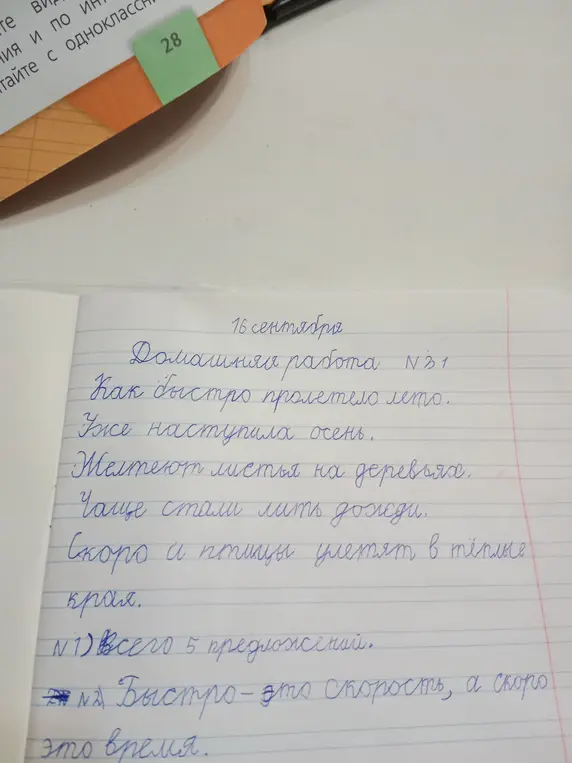 те вид
ния и по инт
тайте с одноклассн
28
16 сентября
Домашняя работа N31
Как быстро пролетело лето.
Уже наступила осень.
Желтеют листья на деревьях.
Чаще стали лить дожди.
Скоро и птицы улетят в тёплые
края.
N1) Всего 5 предложений.
N2) Быстро - это скорость, а скоро
это время.